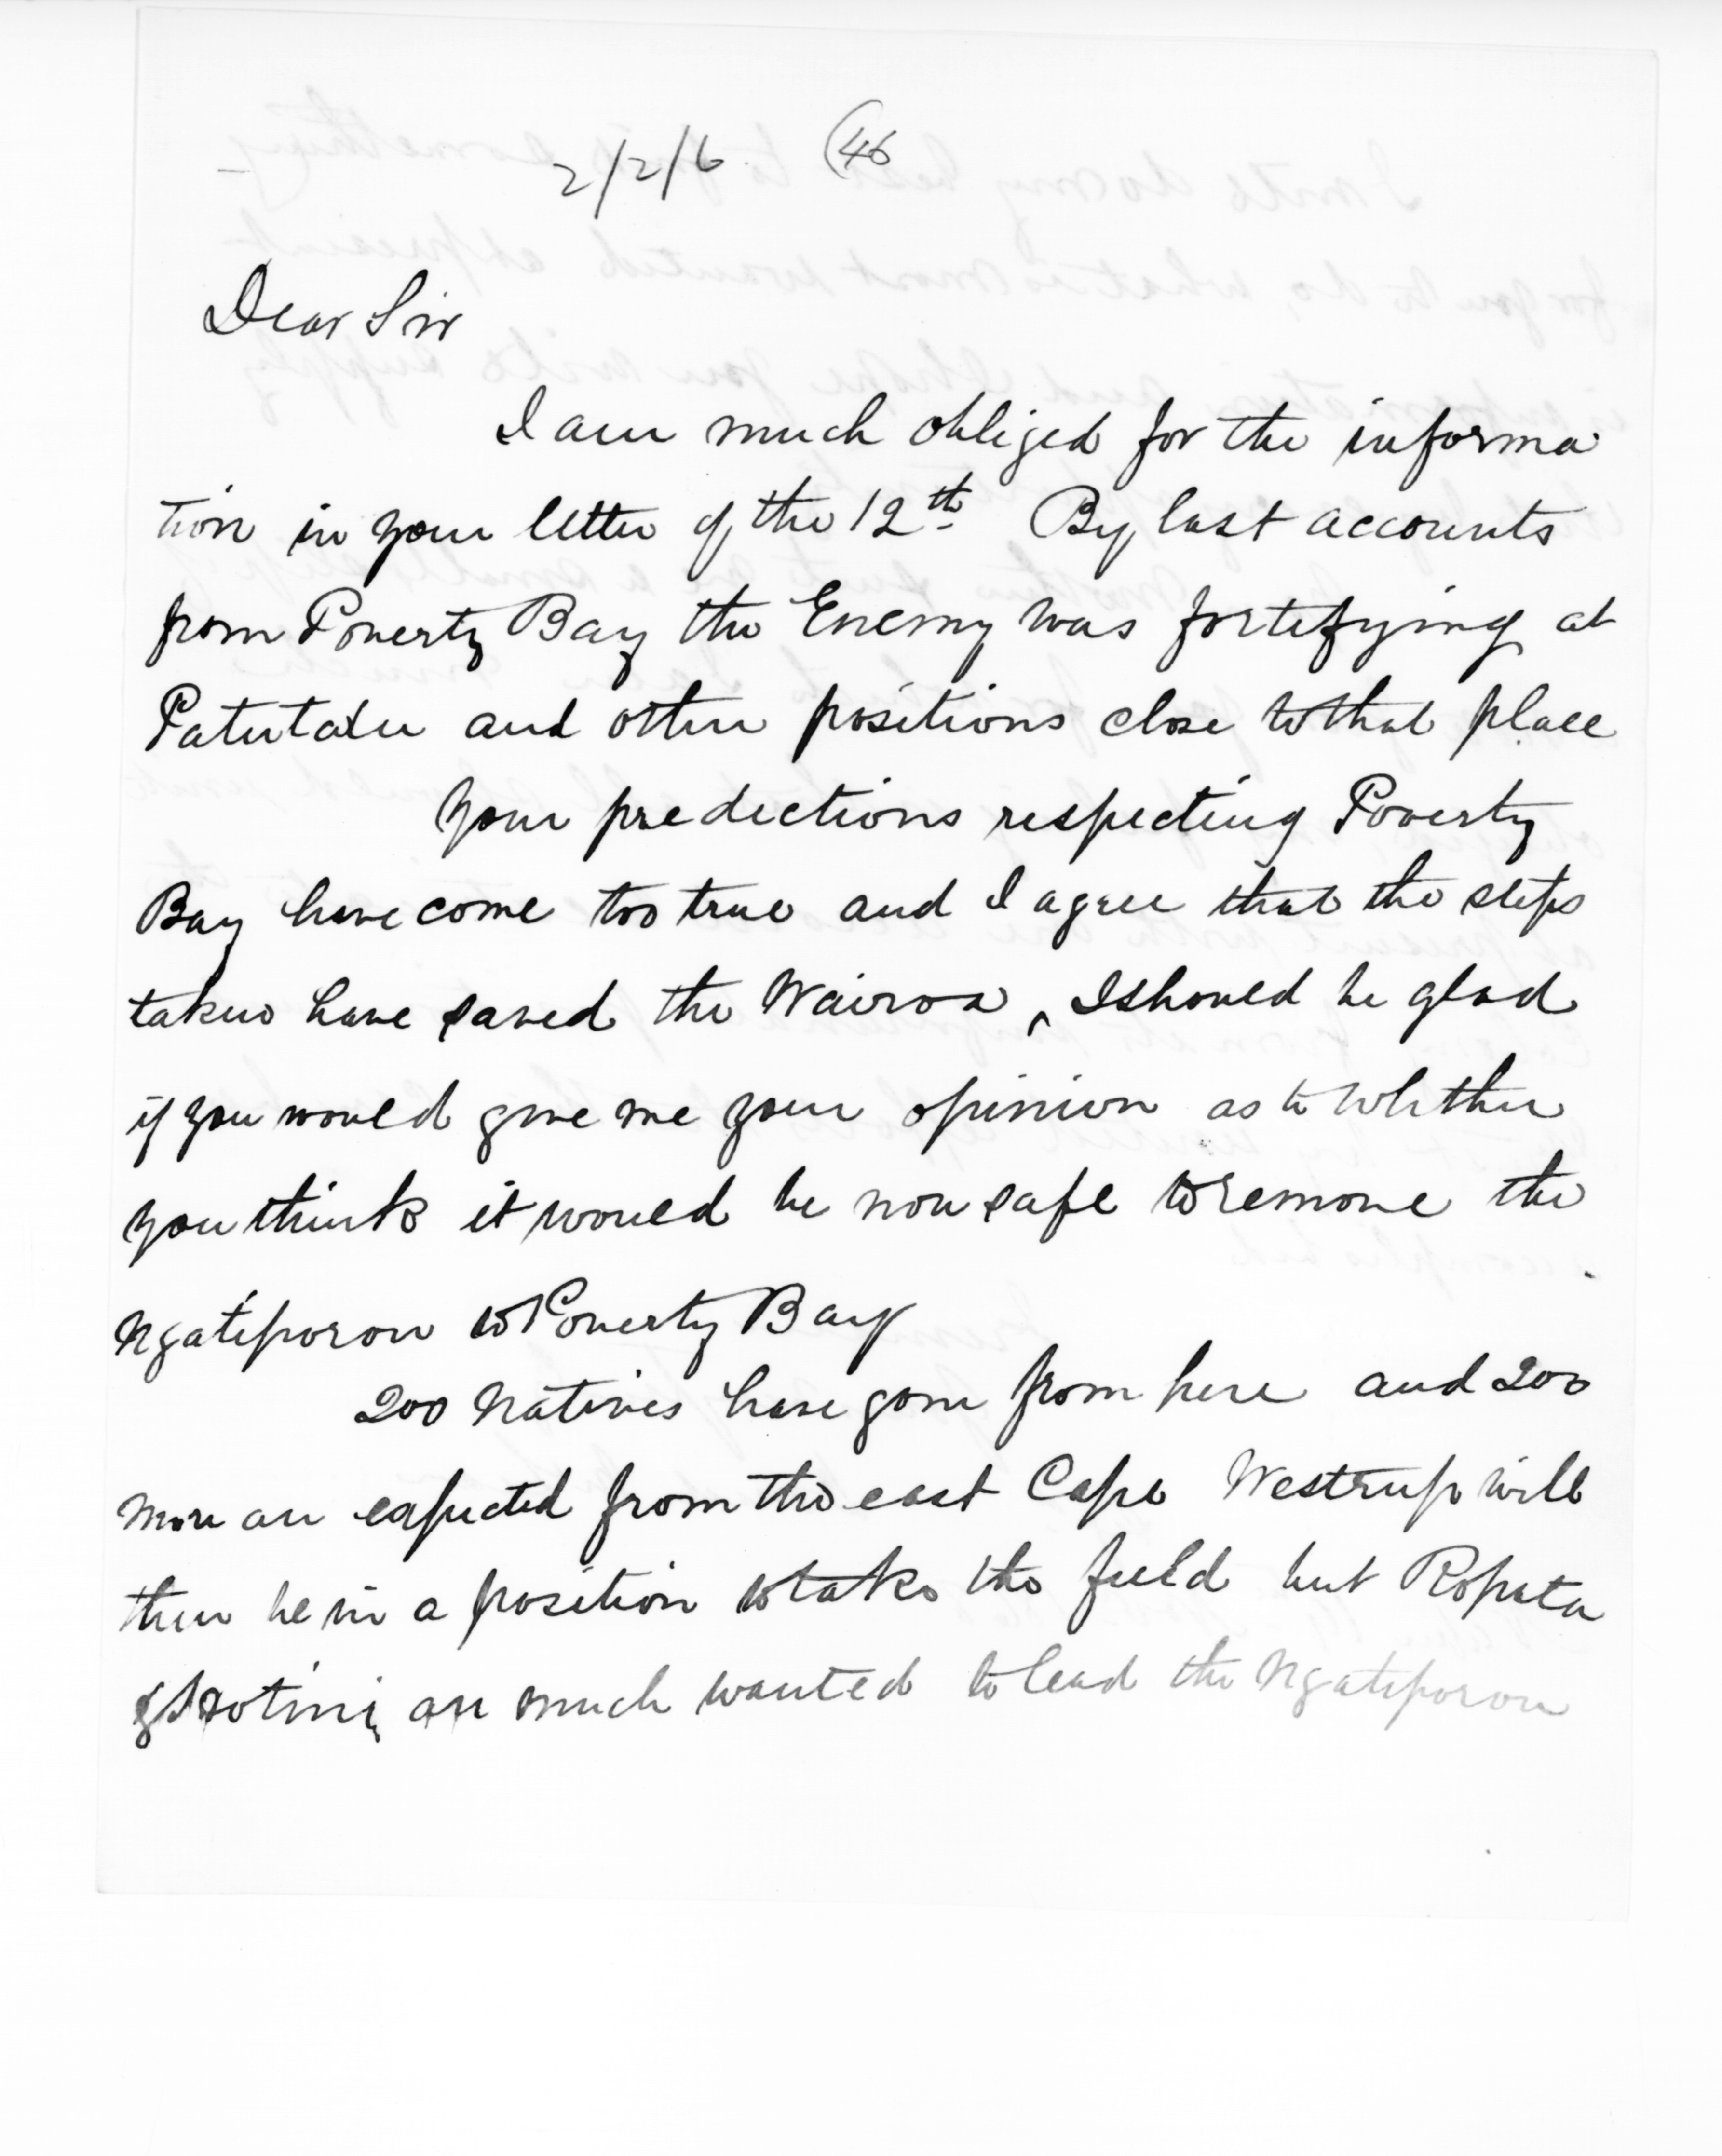 2/2/6 (46
Dear Sir
I am much obliged for the informa
tion in your letter of the 12th By last accounts
from Poverty Bay the Enemy was fortifying at
Patutahi and other positions close to that place
Your predictions respecting Poverty
Bay have come too true and I agree that the steps
taken have saved the Wairoa, I should be glad
if you would give me your opinion as to whether
you think it would be now safe to remove the
Ngatiporou to Poverty Bay
200 Natives have gone from here and 200
more are expected from the east Cape Westrup will
then be in a position to take the field but Ropata
& Hotini are much wanted to lead the Ngatiporou